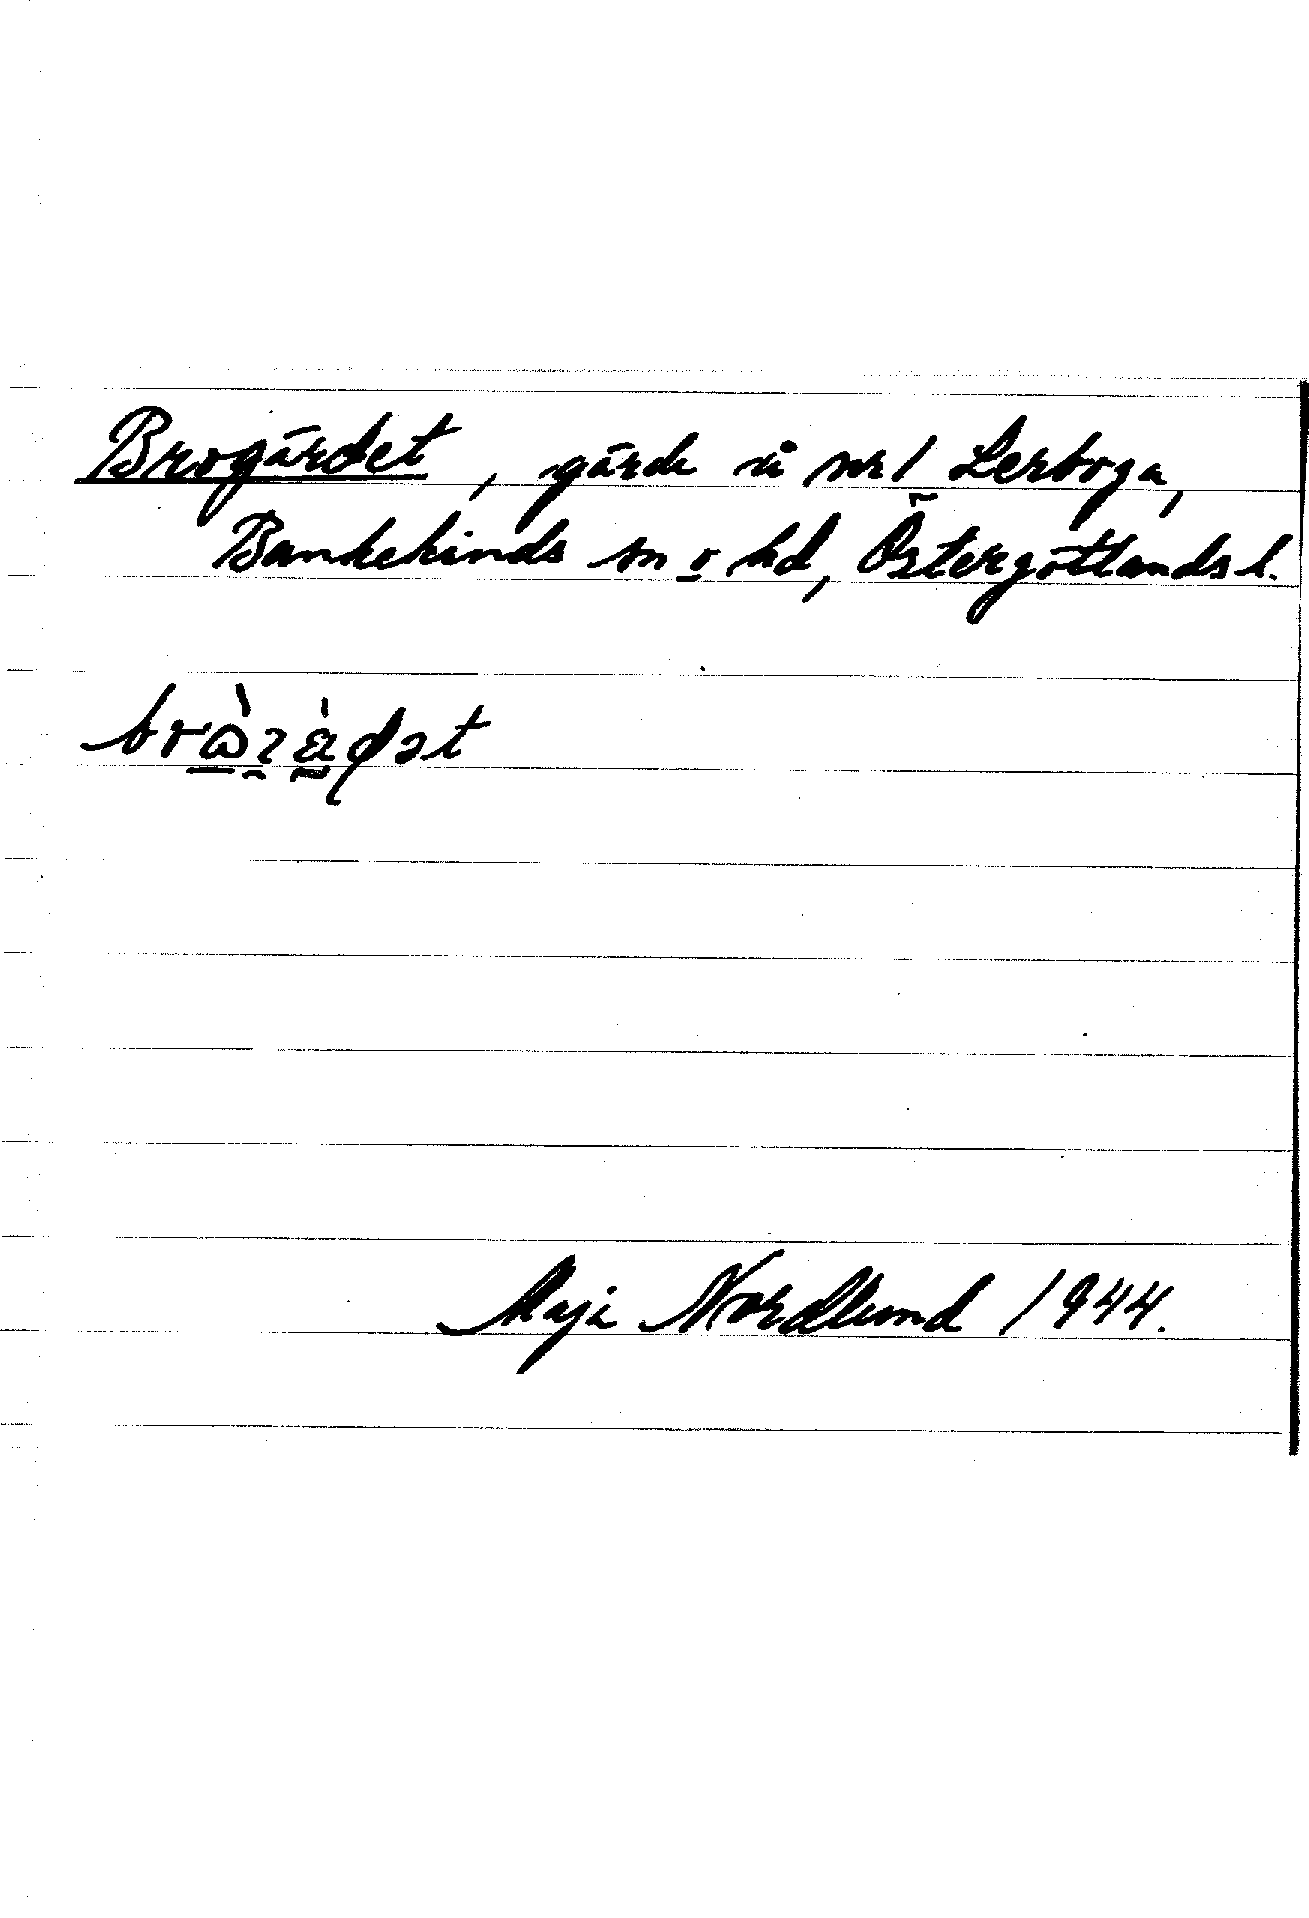 Brogärdet, gärde å nr 1 Lerboga,
Bankekinds sn o hd, Östergötlands l.
Maja Nordlund 1944.